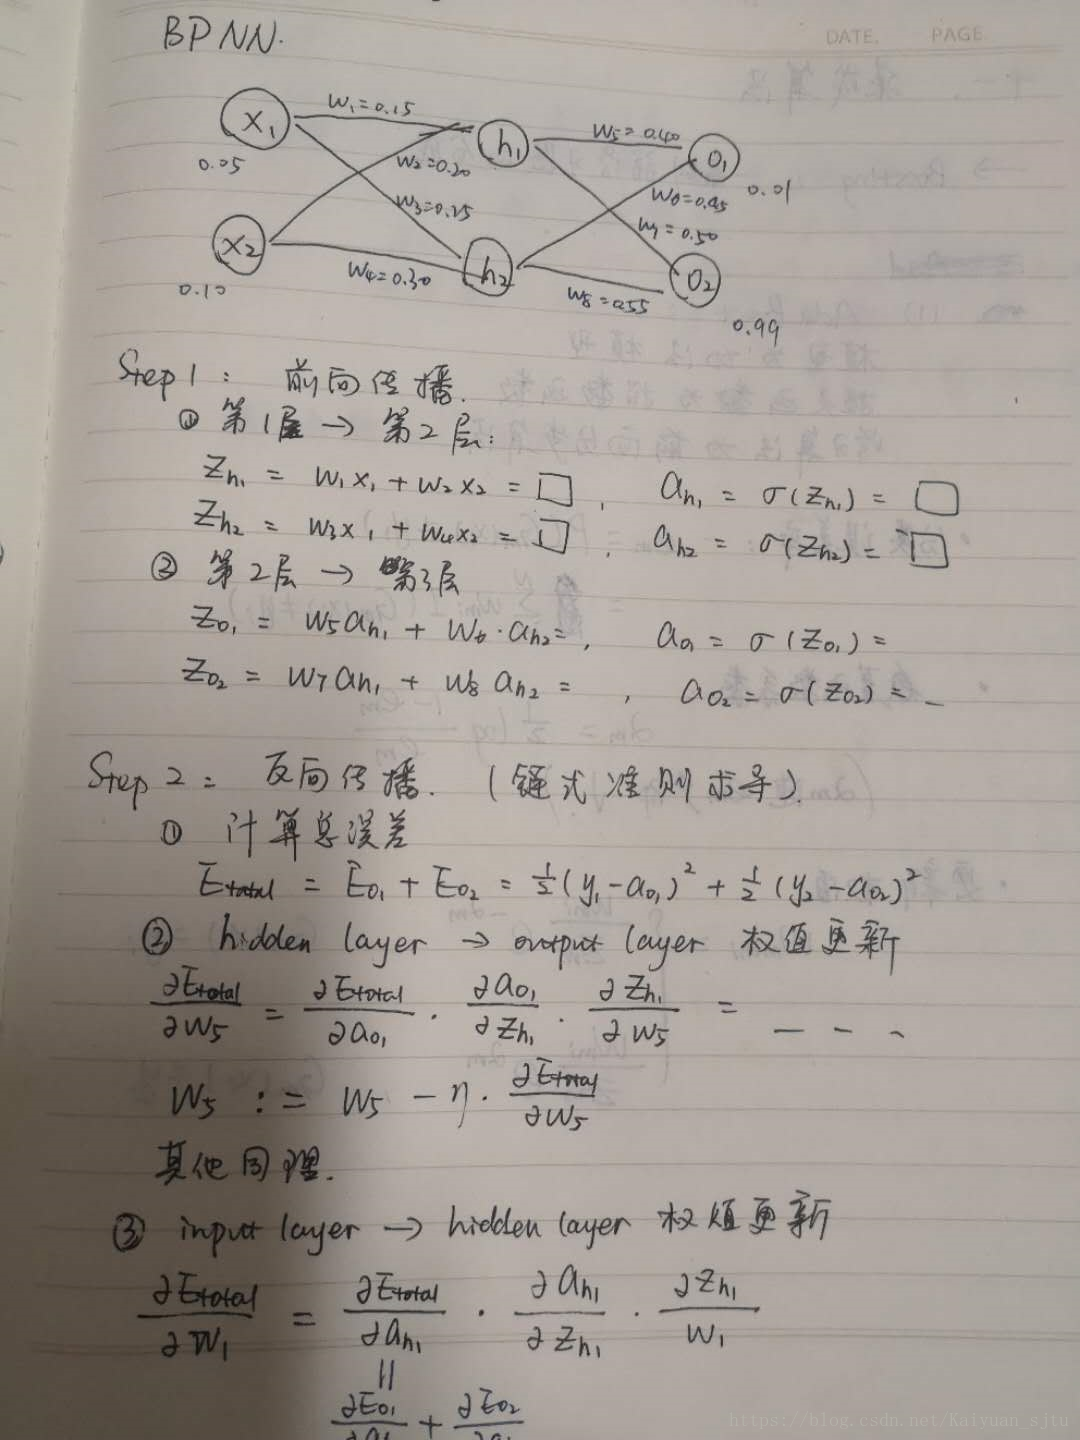 DATE. PAGE.
BPNN.
X₁ W₁=0.15 h₁ W₅=0.40 O₁
0.05 W₂=0.20 W₆=0.45 0.01
W₃=0.25 W₇=0.50
X₂ W₄=0.30 h₂ W₈=0.55 O₂
0.10 0.99
Step 1: 前向传播.
① 第1层 → 第2层:
Zh₁ = W₁x₁ + W₂x₂ = □, ah₁ = σ(Zh₁) = □
Zh₂ = W₃x₁ + W₄x₂ = □, ah₂ = σ(Zh₂) = □
② 第2层 → 第3层
Zo₁ = W₅ah₁ + W₆·ah₂ = , ao₁ = σ(Zo₁) =
Zo₂ = W₇ah₁ + W₈ah₂ = , ao₂ = σ(Zo₂) = _
Step 2: 反向传播. (链式准则求导).
① 计算总误差
Etotal = Eo₁ + Eo₂ = ½(y₁-ao₁)² + ½(y₂-ao₂)²
② hidden layer → output layer 权值更新
∂Etotal/∂W₅ = ∂Etotal/∂ao₁ · ∂ao₁/∂Zh₁ · ∂Zh₁/∂W₅ = _ _ _
W₅ := W₅ - η·∂Etotal/∂W₅
其他同理.
③ input layer → hidden layer 权值更新
∂Etotal/∂W₁ = ∂Etotal/∂ah₁ · ∂ah₁/∂Zh₁ · ∂Zh₁/W₁
=
∂Eo₁ + ∂Eo₂
https://blog.csdn.net/Kaiyuan_sjtu